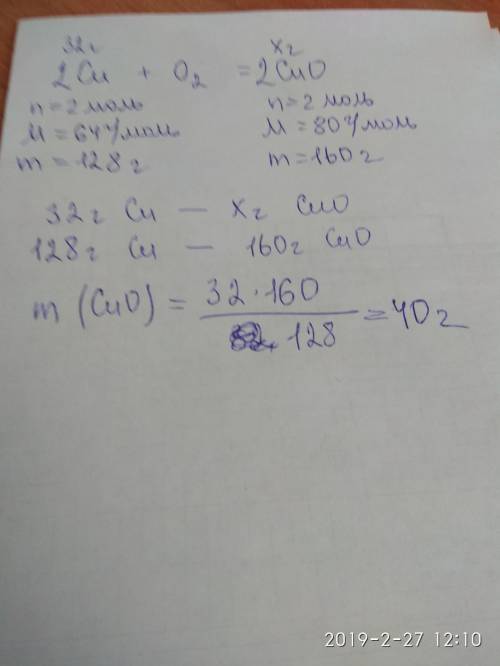 32г xг
2Cu + O₂ = 2CuO
n = 2 моль n = 2 моль
M = 64 г/моль M = 80 г/моль
m = 128 г m = 160 г
32г Cu — xг CuO
128г Cu — 160г CuO
m (CuO) = 32 · 160 / 128 = 40 г
2019-2-27 12:10